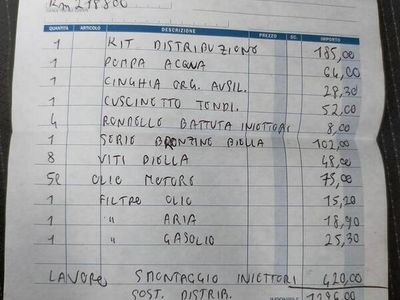 Km 218800
QUANTITÀ ARTICOLO DESCRIZIONE PREZZO SC. IMPORTO
1 KIT DISTRIBUZIONE 185,00
1 POMPA ACQUA 64,00
1 CINGHIA ORG. AUSIL. 28,30
1 CUSCINETTO TENDI. 52,00
4 RONDELLE BATTUTA INIETTORI 8,00
1 SERIE BRONZINE BIELLA 102,00
8 VITI BIELLA 48,00
5l OLIO MOTORE 75,00
1 FILTRO OLIO 15,20
1 " ARIA 18,90
1 " GASOLIO 25,30
LAVORO SMONTAGGIO INIETTORI 420,00
SOST. DISTRIB.